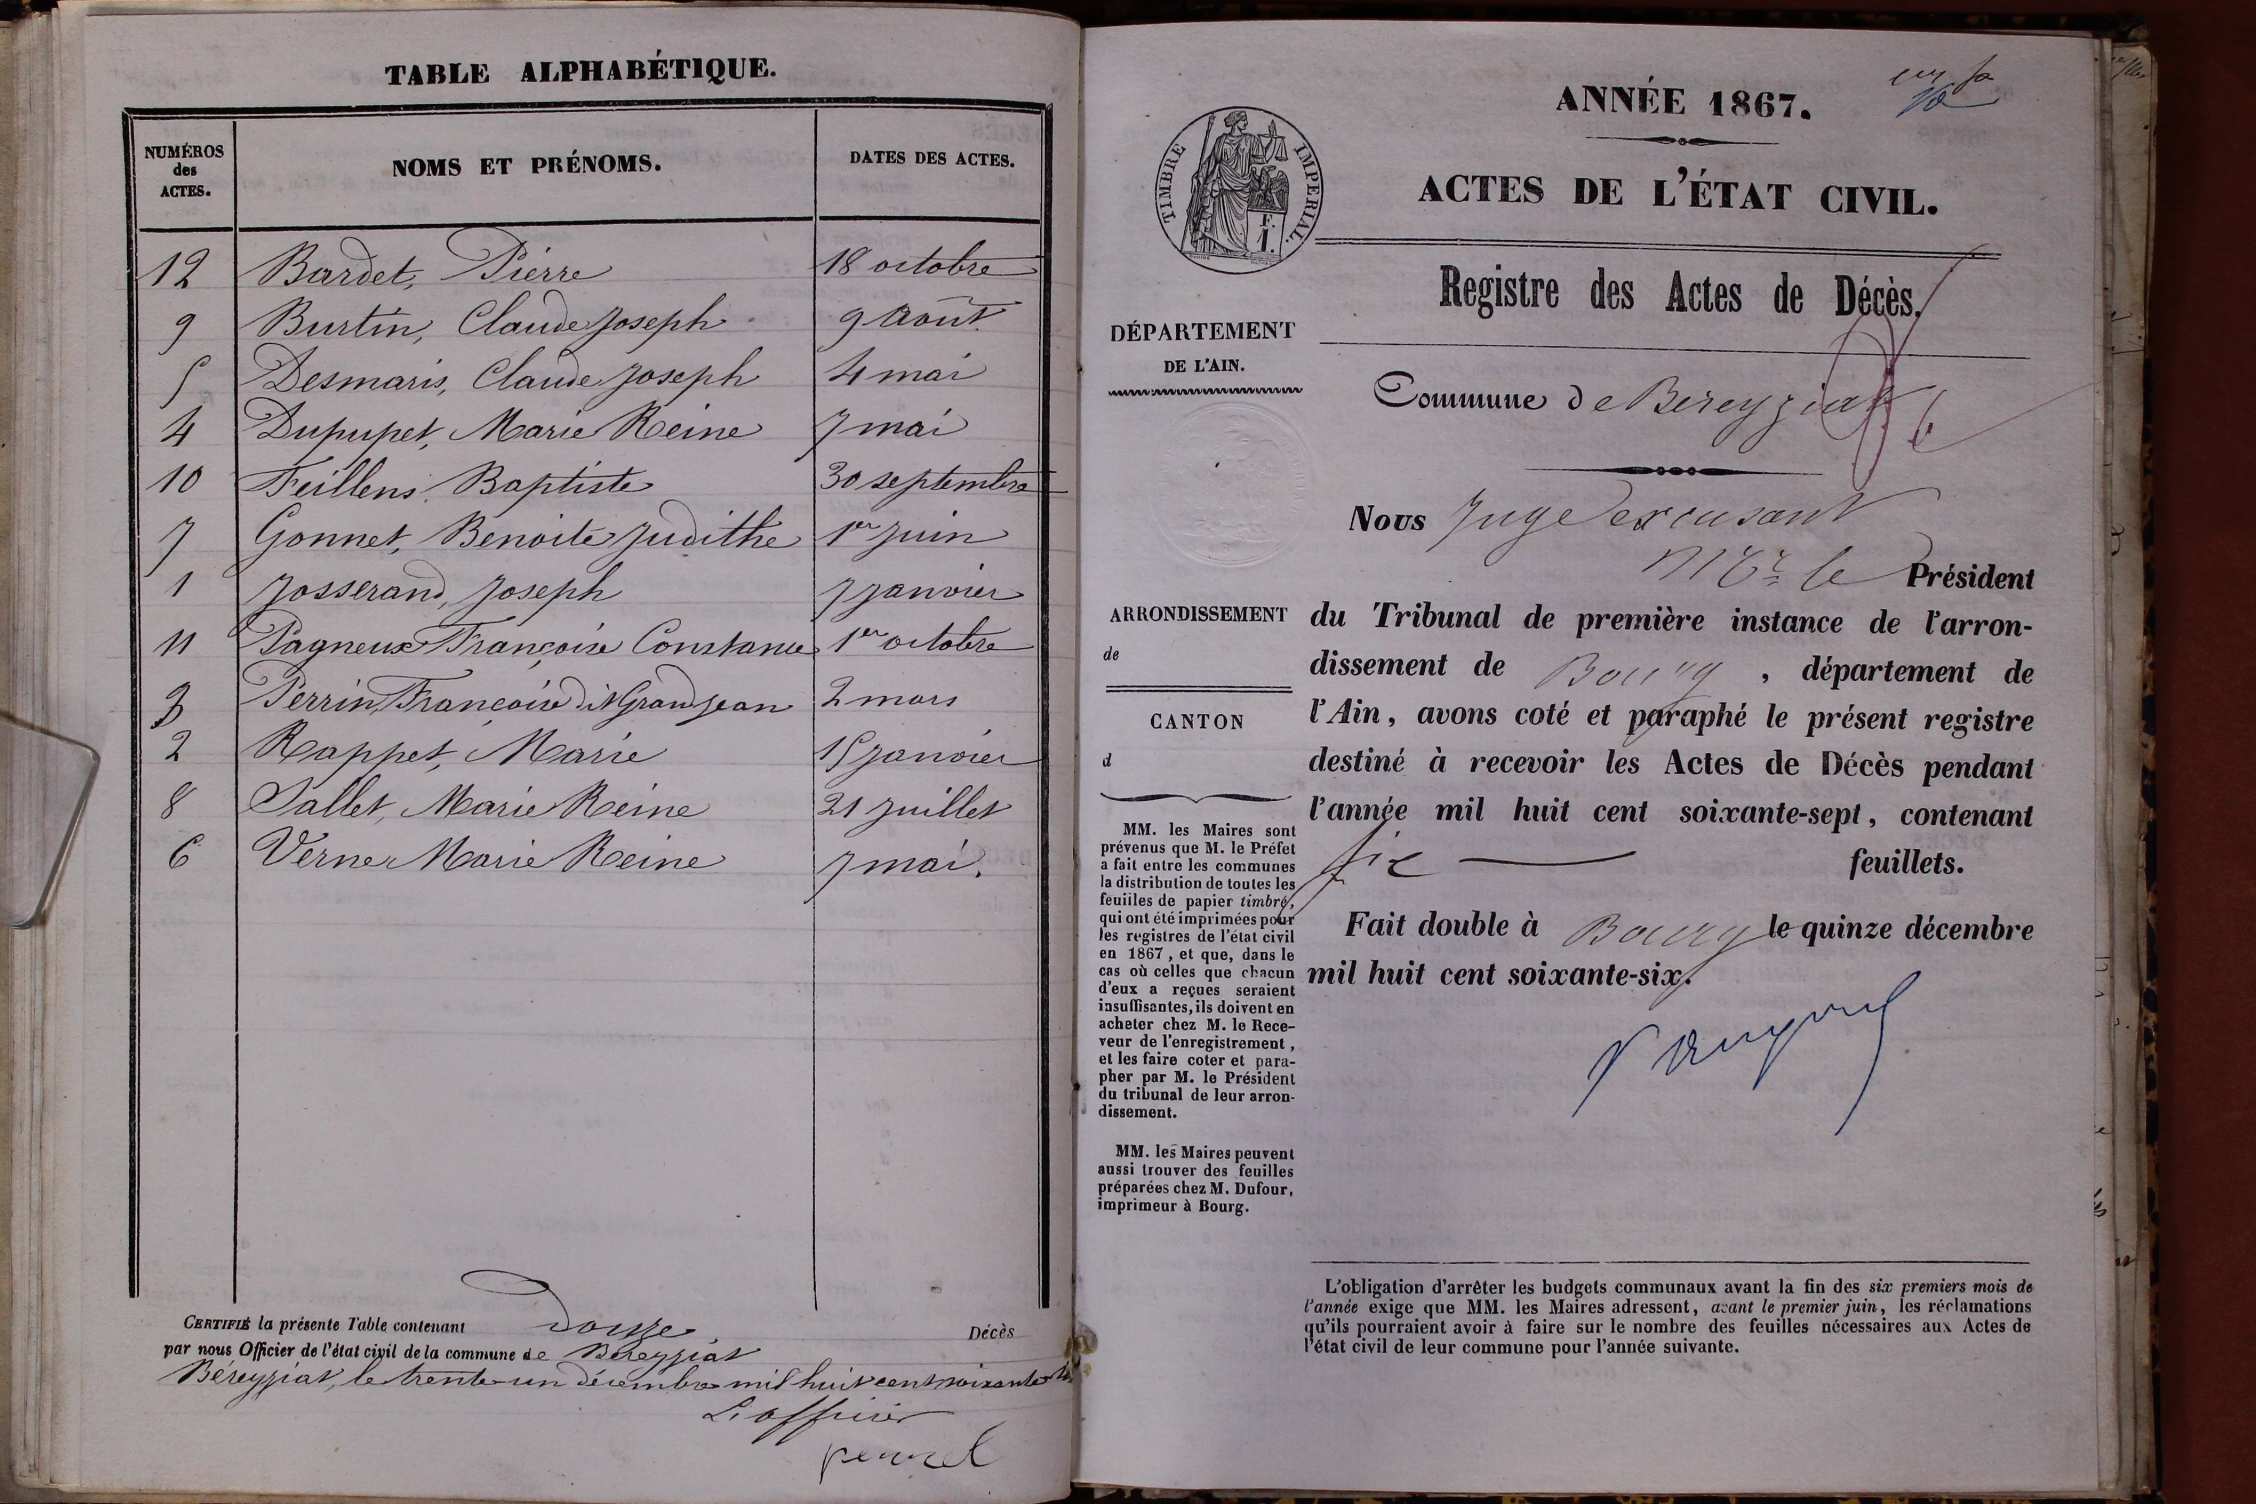 TABLE ALPHABÉTIQUE.
NUMÉROS des ACTES. NOMS ET PRÉNOMS. DATES DES ACTES.
12 Bardet, Pierre 18 octobre
9 Burtin, Claude Joseph 9 Août.
5 Desmaris, Claude Joseph 4 mai
4 Dupupet, Marie Reine 7 mai
10 Feillens Baptiste 30 septembre
7 Gonnet, Benoite Judithe 1er Juin
1 Josserand, Joseph 7 janvier
11 Pagneux Françoise Constance 1er octobre
3 Perrin, Françoise dit Grand Jean 2 mars
2 Rappet, Marie 15 janvier
8 Sallet, Marie Reine 21 juillet
6 Verne Marie Reine 7 mai.
CERTIFIÉ la présente Table contenant douze Décès
par nous Officier de l'état civil de la commune de Béreyziat
Béreyziat, le trente un décembre mil huit cent soixante
L'officier
ANNÉE 1867.
ACTES DE L'ÉTAT CIVIL.
TIMBRE IMPERIAL.
F.
1.
Registre des Actes de Décès.
DÉPARTEMENT
DE L'AIN.
Commune de Bereyziat
Nous Juge excusant
Mr le Président
ARRONDISSEMENT
de
CANTON
d
du Tribunal de première instance de l'arron-
dissement de Bourg, département de
l'Ain, avons coté et paraphé le présent registre
destiné à recevoir les Actes de Décès pendant
l'année mil huit cent soixante-sept, contenant
six feuillets.
Fait double à Bourg le quinze décembre
mil huit cent soixante-six.
MM. les Maires sont
prévenus que M. le Préfet
a fait entre les communes
la distribution de toutes les
feuilles de papier timbré,
qui ont été imprimées pour
les registres de l'état civil
en 1867, et que, dans le
cas où celles que chacun
d'eux a reçues seraient
insuffisantes, ils doivent en
acheter chez M. le Rece-
veur de l'enregistrement,
et les faire coter et para-
pher par M. le Président
du tribunal de leur arron-
dissement.
MM. les Maires peuvent
aussi trouver des feuilles
préparées chez M. Dufour,
imprimeur à Bourg.
L'obligation d'arrêter les budgets communaux avant la fin des six premiers mois de
l'année exige que MM. les Maires adressent, avant le premier juin, les réclamations
qu'ils pourraient avoir à faire sur le nombre des feuilles nécessaires aux Actes de
l'état civil de leur commune pour l'année suivante.